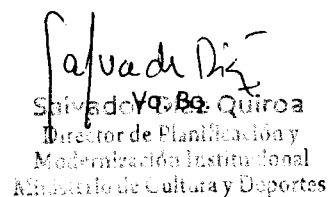 Salvador Diaz
Vo. Bo.
Salvador Quiroa
Director de Planificación y
Modernización Institucional
Ministerio de Cultura y Deportes